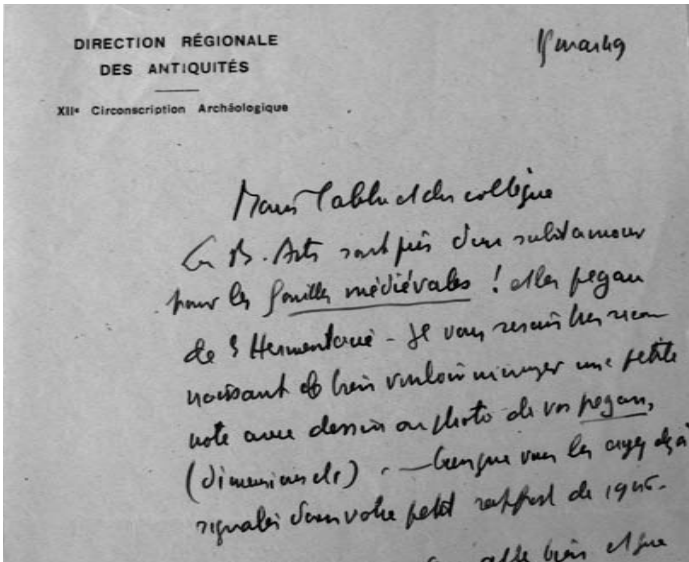 DIRECTION RÉGIONALE
DES ANTIQUITÉS
XIIe Circonscription Archéologique
mars 49
et cher collègue
Les B. Arts sont pris d'un subit amour
pour les fouilles médiévales ! et les pegau
de S Hermentaire - Je vous serais bien recon
naissant de bien vouloir m'envoyer une petite
note avec dessin ou photo de vos pegau,
(dimensions etc) . — bien que vous les ayez déjà
signalés dans votre petit rapport de 1945.
bien et que